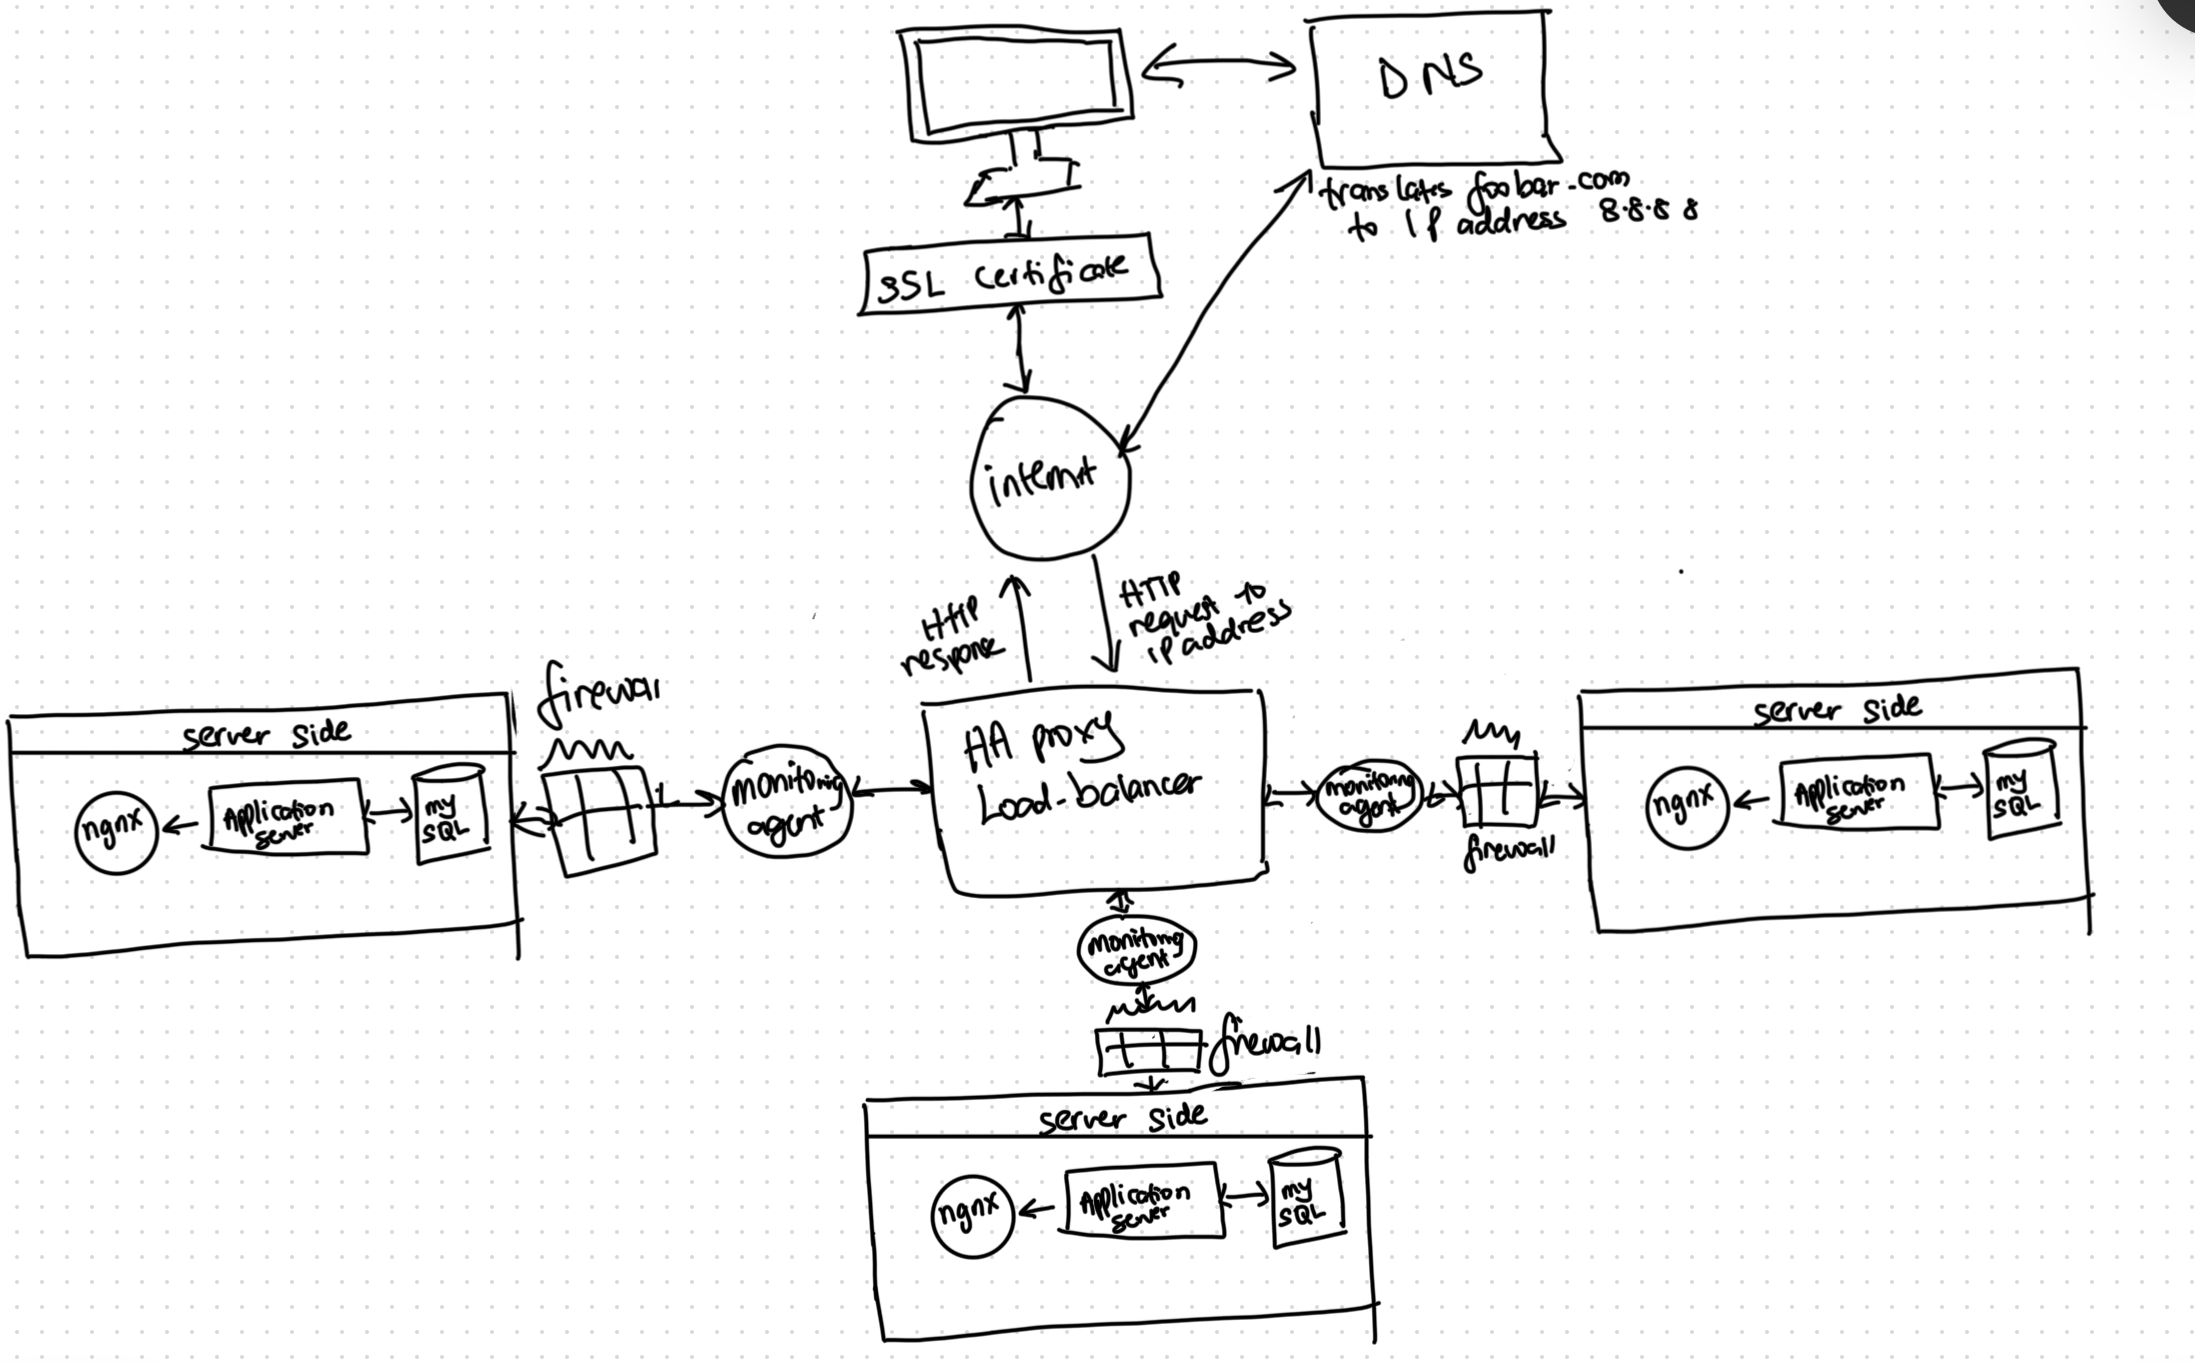 DNS
translates foobar.com
to IP address 8.8.8 8
SSL certificate
internet
HTTP
response
HTTP
request to
ip address
firewall
server side
ngnx
Application
server
my
SQL
monitoring
agent
HA proxy
Load-balancer
monitoring
agent
firewall
server side
ngnx
Application
server
my
SQL
monitoring
agent
firewall
server side
ngnx
Application
server
my
SQL